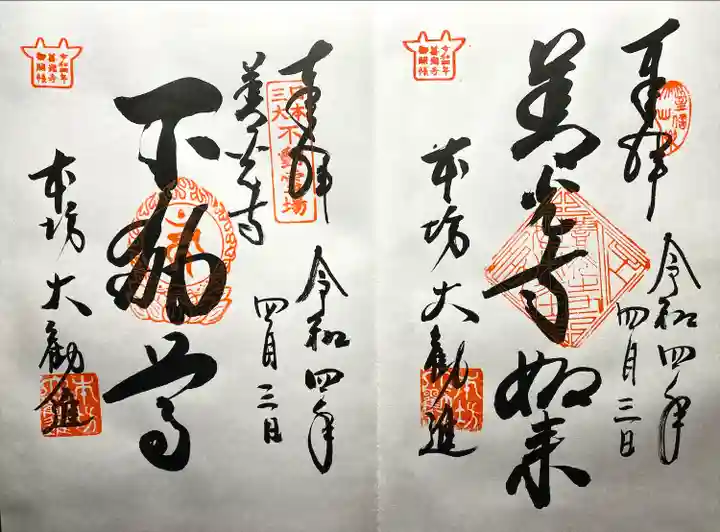 奉拝
善光寺如来
令和四年
四月三日
本坊
大勧進
令和四年
善光寺
御開帳
奉拝
日本
三大
不動霊場
善光寺
不動尊
令和四年
四月三日
本坊
大勧進
令和四年
善光寺
御開帳